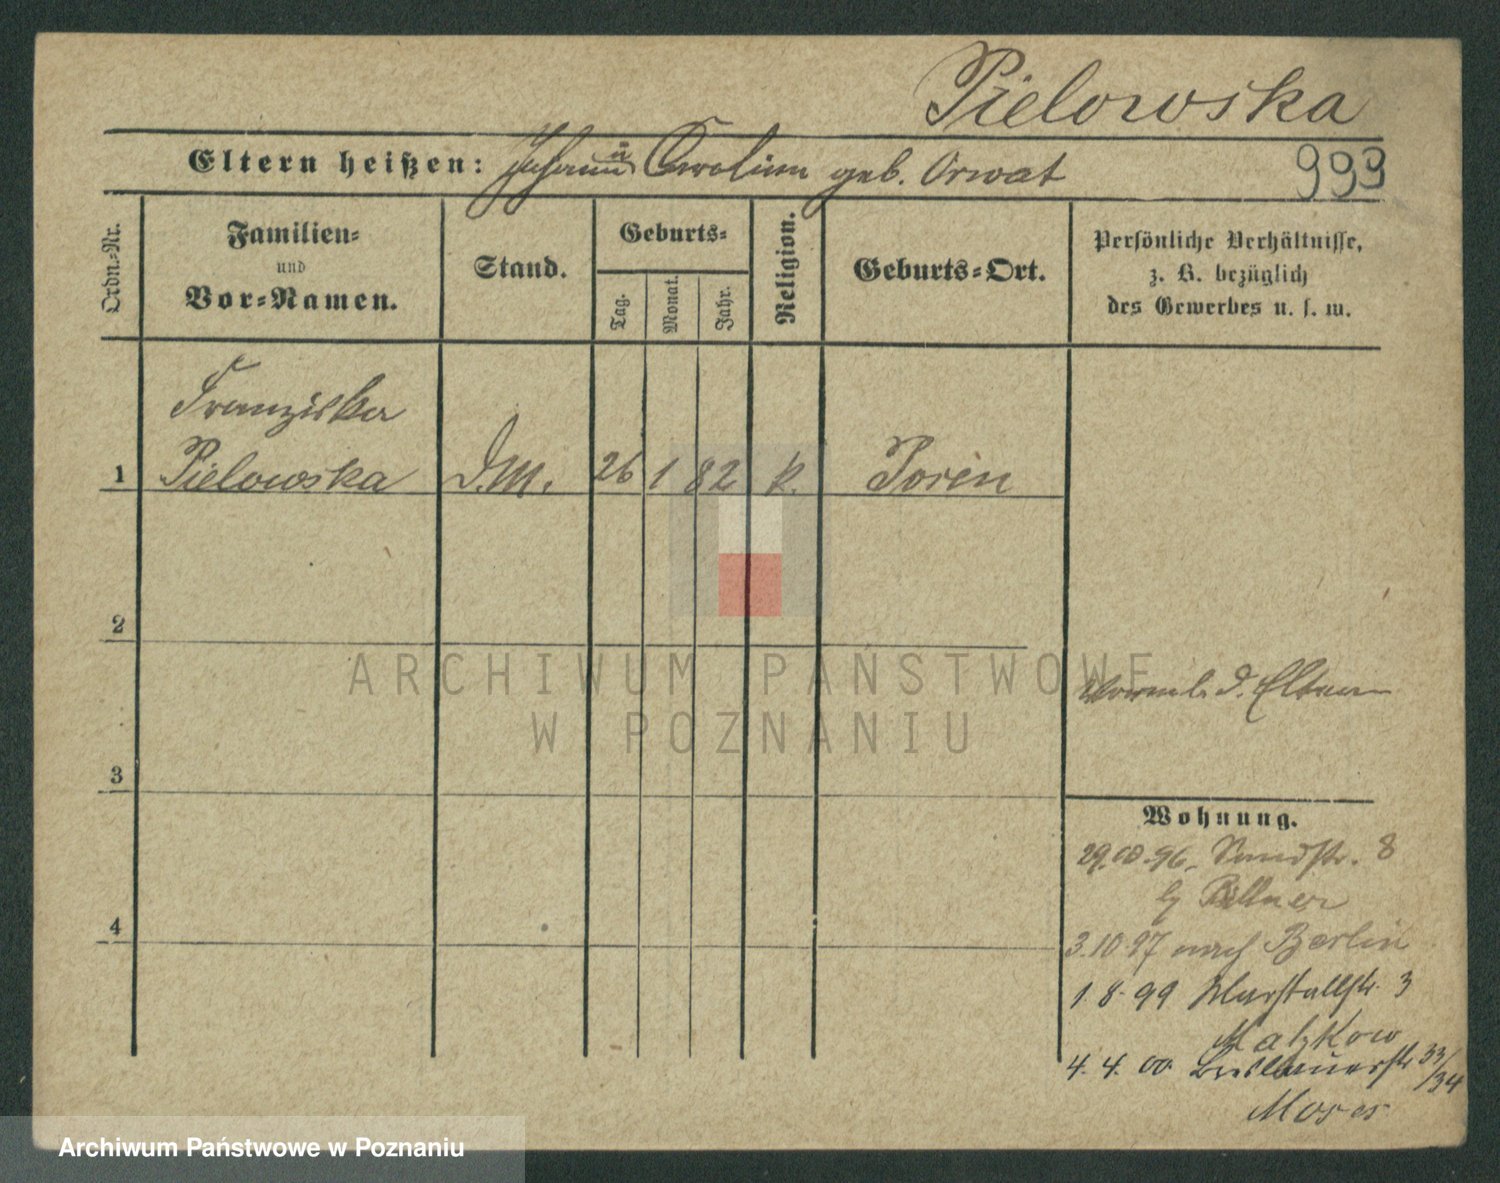 Pielowska
Eltern heißen: Johann u Carolina geb. Orwat
999
Ordn.-Nr.
Familien-
und
Vor-Namen.
Stand.
Geburts-
Tag.
Monat.
Jahr.
Religion.
Geburts-Ort.
Persönliche Verhältnisse,
z. B. bezüglich
des Gewerbes u. s. w.
Franziska
1 Pielowska D.M. 26 1 82 k. Posen
2
ARCHIWUM PAŃSTWOWE
W POZNANIU
d. Eltern
3
Wohnung.
29. 96. Sandstr. 8
4
3.10.97 nach Berlin
1.8.99 Marstallstr. 3
Matzkow
4.4.00. Breslauerstr 33/34
Moses
Archiwum Państwowe w Poznaniu